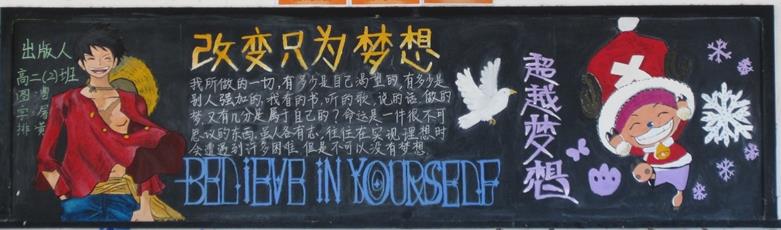 出版人
高二(2)班
图:曹
字:屠
排:黄
改变只为梦想
我所做的一切,有多少是自己渴望的,有多少是
别人强加的,我看的书,听的歌,说的话,做的
梦,又有几分是属于自己的?命运是一件很不可
思议的东西,虽人各有志,往往在实现理想时
会遭遇到许多困难,但是不可以没有梦想
BELiEVE iN YOURSELF
超越梦想